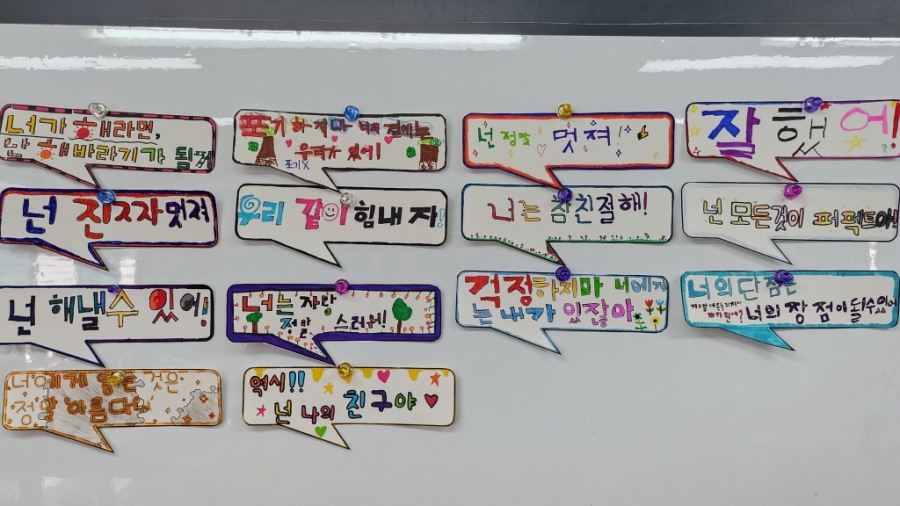 너가 해라면,
난 해바라기가 될게
포기하지마 너의 곁에는
우리가 있어!
포기X
넌 정말 멋져!
잘 했어!
넌 진짜 멋져
우리 같이 힘내자!
너는 참 친절해!
넌 모든것이 퍼펙트야!
넌 해낼수 있어!
너는 자랑
정말 스러워!
걱정하지마 너에게
는 내가 있잖아
너의 단점은
너의 장점이 될수있어
너에게 담은 것은
정말 아름다워
역시!!
넌 나의 친구야